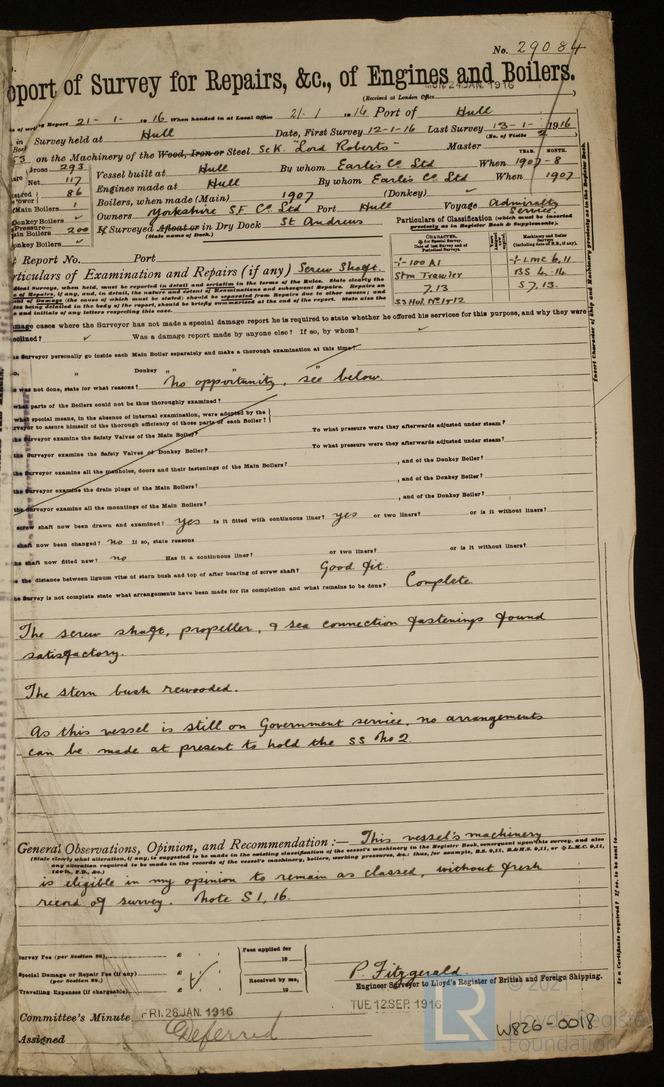 No. 29084
port of Survey for Repairs, &c., of Engines and Boilers.
MON. 24 JAN. 1916
(Received at London Office
Report 21-1-1916 When handed in at Local Office 21.1.1916 Port of Hull
Survey held at Hull Date, First Survey 12-1-16 Last Survey 13-1-1916
(No. of Visits 2)
on the Machinery of the Wood, Iron or Steel ScK. "Lord Roberts" Master
YEAR. MONTH.
Gross 293 Vessel built at Hull By whom Earles Co Ltd When 1907-8
Net 117 Engines made at Hull By whom Earles Co Ltd When 1907
86 Boilers, when made (Main) 1907 (Donkey)
Main Boilers 1 Owners Yorkshire S.F. Co. Ltd Port Hull Voyage Admiralty Service.
Donkey Boilers ✓ If Surveyed Afloat or in Dry Dock St Andrews
(State name of Dock.)
Pressure—
Main Boilers 200
Donkey Boilers ✓
Particulars of Classification (which must be inserted
precisely as in Register Book & Supplements).
CHARACTER.
Machinery and Boiler
Surveys
(including date of N.B., if any).
+100 A1 +LMC 6,11
Stm Trawler BS 4.14
7.13 S 7.13.
SS Hul. No 1-7.12
Insert Character of Ship and Machinery precisely as in the Register Book.
Report No. Port
rticulars of Examination and Repairs (if any) Screw Shaft.
amage cases where the Surveyor has not made a special damage report he is required to state whether he offered his services for this purpose, and why they were
eclined? ✓ Was a damage report made by anyone else? If so, by whom? ✓
Surveyor personally go inside each Main Boiler separately and make a thorough examination at this time?
" Donkey " "
was not done, state for what reasons? No opportunity, see below.
what parts of the Boilers could not be thoroughly examined?
what special means, in the absence of internal examination, were adopted by the
rveyor to assure himself of the thorough efficiency of those parts of each Boiler?
the Surveyor examine the Safety Valves of the Main Boiler? To what pressure were they afterwards adjusted under steam?
the Surveyor examine the Safety Valves of Donkey Boiler? To what pressure were they afterwards adjusted under steam?
the Surveyor examine all the manholes, doors and their fastenings of the Main Boilers? , and of the Donkey Boiler?
the Surveyor examine the drain plugs of the Main Boilers? , and of the Donkey Boiler?
the Surveyor examine all the mountings of the Main Boilers? , and of the Donkey Boiler?
screw shaft now been drawn and examined? yes Is it fitted with continuous liner? yes or two liners? or is it without liners?
shaft now been changed? no If so, state reasons
he shaft now fitted new? no Has it a continuous liner? or two liners? or is it without liners?
the distance between lignum vitæ of stern bush and top of after bearing of screw shaft? Good fit.
he Survey is not complete state what arrangements have been made for its completion and what remains to be done? Complete
The screw shaft, propeller, & sea connection fastenings found
satisfactory.
The stern bush rewooded.
As this vessel is still on Government service, no arrangements
can be made at present to hold the SS No 2.
General Observations, Opinion, and Recommendation:— This vessel's machinery
(State clearly what alteration, if any, is suggested to be made in the existing classification of the vessel's machinery in the Register Book, consequent upon this survey, and also
any alteration required to be made in the records of the vessel's machinery, boilers, working pressures, &c.: thus, for example, B.S. 9,11, B.&M.S. 9,11, or + L.M.C. 9,11,
140 lb., F.D., &c.)
is eligible in my opinion to remain as classed, without fresh
record of survey. Note S 1, 16.
Survey Fee (per Section 28) £ Fees applied for
19
Special Damage or Repair Fee (if any) £ ✓
(per Section 28.) Received by me,
Travelling Expenses (if chargeable) £ 19
P. Fitzgerald.
Engineer Surveyor to Lloyd's Register of British and Foreign Shipping.
TUE 12 SEP 1916
Committee's Minute FRI. 28 JAN. 1916
Assigned Deferred
W826-0018
LR
© 2021
Lloyd's Register
Foundation